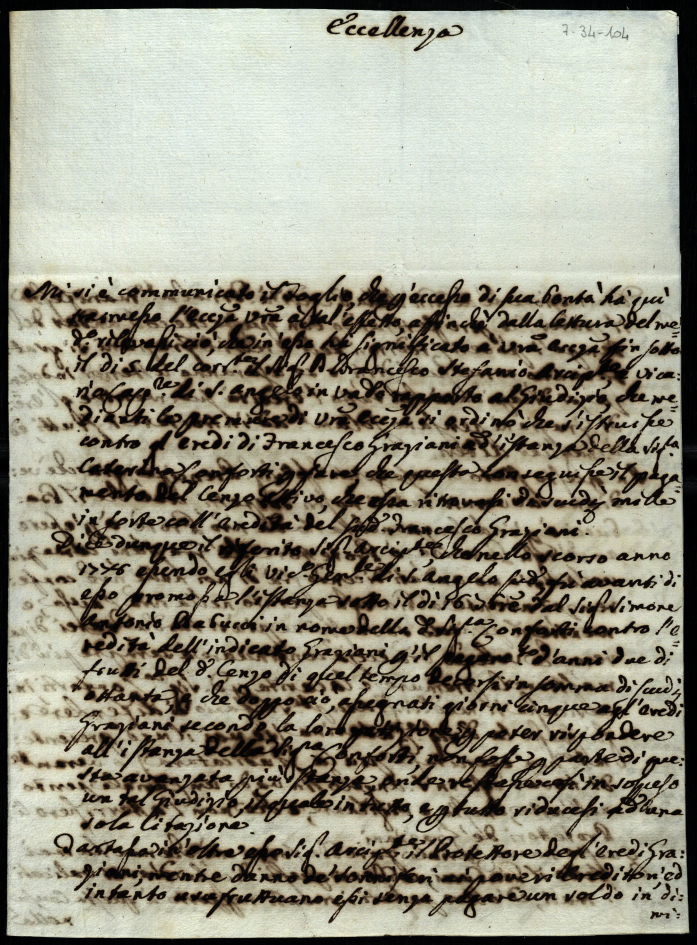 Eccellenza
7-34-104
Mi si è communicato il Foglio, che per eccesso di sua bontà hà quì
trasmesso l'Eccza Vra a tal'effetto, affinchè dalla lettura del me-
do rilevassi ciò, che in esso hà significato a Vra Eccza fin sotto
il dì 5. del corrte il Sigr D. Francesco Stefanio Arciprte e Vica-
rio di S. Angelo in Vado rapporto al Giudizio, che me-
dianti le premure di Vra Eccza si ordinò che s'istruisse
contro gl'Eredi di Francesco Graziani all'istanza della Siga
Caterina Conforti per fare, che questa conseguisse il paga-
mento del Cenzo, che essa ritrovasi di scudi mille
in sorte coll'Eredità del sudo Francesco Graziani.
Dice dunque il riferito Sigr Arciprte, che nello scorso anno
essendo egli Vico Genle di S. Angelo sudo, fù avanti di
esso promossa l'istanza sotto il dì 16 dal Sigr Simone
Antonio in nome della d. Siga Conforti contro l'E-
redità dell'indicato Graziani per il pagamto d'anni due di
frutti del do Cenzo di quel tempo decorsi in somma di scudi
ottanta, e che doppo ciò, assegnati giorni cinque agl'Eredi
Graziani secondo la loro per poter rispondere
all'istanza della Siga Conforti, non fosse per parte di que-
sta avanzata più istanza, onde restasse così in sospeso
un tal Giudizio, il quale in tutto, e per tutto riducesi ad una
sola Citazione.
esso Sigr Arciprte il Protettore degl'Eredi Gra-
ziani, mentre danno de' poveri Creditori, ed
intanto usufruttuano essi senza pagare un soldo in di-
mi-